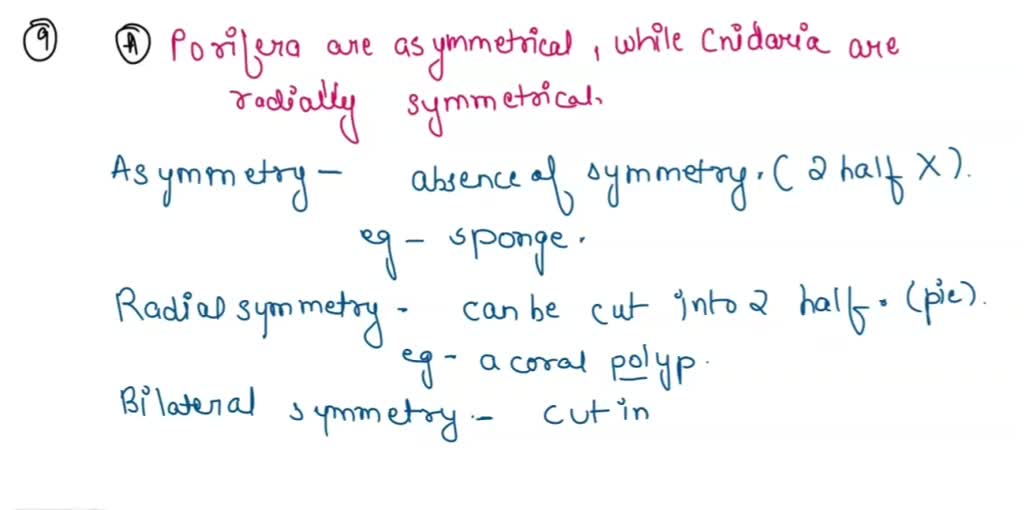 9 A Porifera are asymmetrical, while Cnidaria are
radially symmetrical.
Asymmetry - absence of symmetry. (2 half X).
eg - sponge.
Radial symmetry - can be cut into 2 half. (pie).
eg - a coral polyp.
Bilateral symmetry - cut in